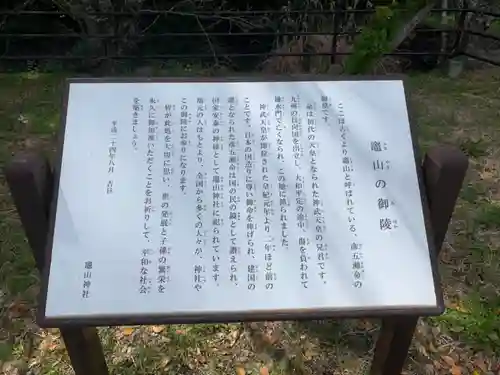 竈山の御陵
ここは古くより竈山と呼ばれている、彦五瀬命の
御陵です。
命は初代の天皇となられた神武天皇の兄君です。
九州の日向国を出立し、大和平定の途中、傷を負われて
雄水門で亡くなられ、この地に葬られました。
神武天皇が即位された皇紀元年より二年ほど前の
ことです。日本の国造りに尊い御命を捧げられ、建国の
礎となられた彦五瀬命は国の民の鏡として讃えられ、
国家安泰の神様として竈山神社に祀られています。
地元の人はもとより、全国から多くの人々が、神社や
この御陵にお参りになります。
皆が此処を大切に思い、世の発展と子孫の繁栄を
永久に御加護いただくことをお祈りして、平和な社会
を築きましょう。
平成二十四年八月 吉日
竈山神社